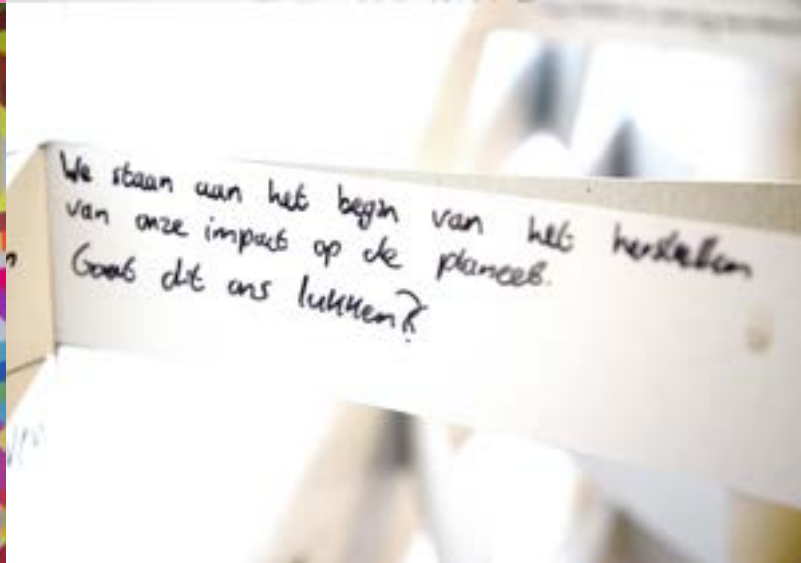 We staan aan het begin van het herstellen
van onze impact op de planeet.
Gaat dit ons lukken?
n